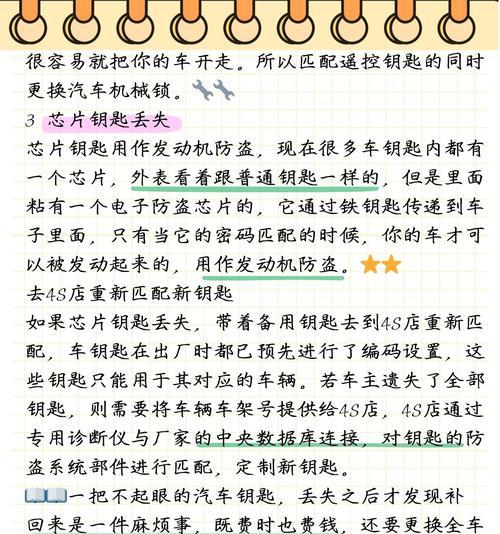 很容易就把你的车开走。所以匹配遥控钥匙的同时
更换汽车机械锁。
3 芯片钥匙丢失
芯片钥匙用作发动机防盗，现在很多车钥匙内都有
一个芯片，外表看着跟普通钥匙一样的，但是里面
粘有一个电子防盗芯片的，它通过铁钥匙传递到车
子里面，只有当它的密码匹配的时候，你的车才可
以被发动起来的，用作发动机防盗。
去4S店重新匹配新钥匙
如果芯片钥匙丢失，带着备用钥匙去到4S店重新匹
配，车钥匙在出厂时都已预先进行了编码设置，这
些钥匙只能用于其对应的车辆。若车主遗失了全部
钥匙，则需要将车辆车架号提供给4S店，4S店通过
专用诊断仪与厂家的中央数据库连接，对钥匙的防
盗系统部件进行匹配，定制新钥匙。
一把不起眼的汽车钥匙，丢失之后才发现补
回来是一件麻烦事，既费时也费钱，还要更换全车